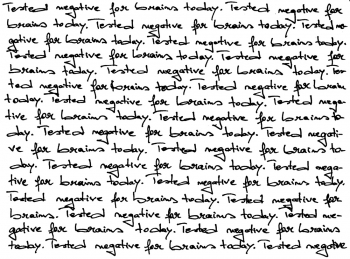 Tested negative for brains today. Tested negative for
brains today. Tested negative for brains today. Tested ne-
gative for brains today. Tested negative for brains today.
Tested negative for brains today. Tested negative for
brains today. Tested negative for brains today. Tes-
ted negative for brains today. Tested negative for brains
today. Tested negative for brains today. Tested nega-
tive for brains today. Tested negative for brains to-
day. Tested negative for brains today. Tested negati-
ve for brains today. Tested negative for brains to-
day. Tested negative for brains today. Tested nega-
tive for brains today. Tested negative for brains today.
Tested negative for brains today. Tested negative for
brains. Tested negative for brains today. Tested ne-
gative for brains today. Tested negative for brains
today. Tested negative for brains today. Tested negative